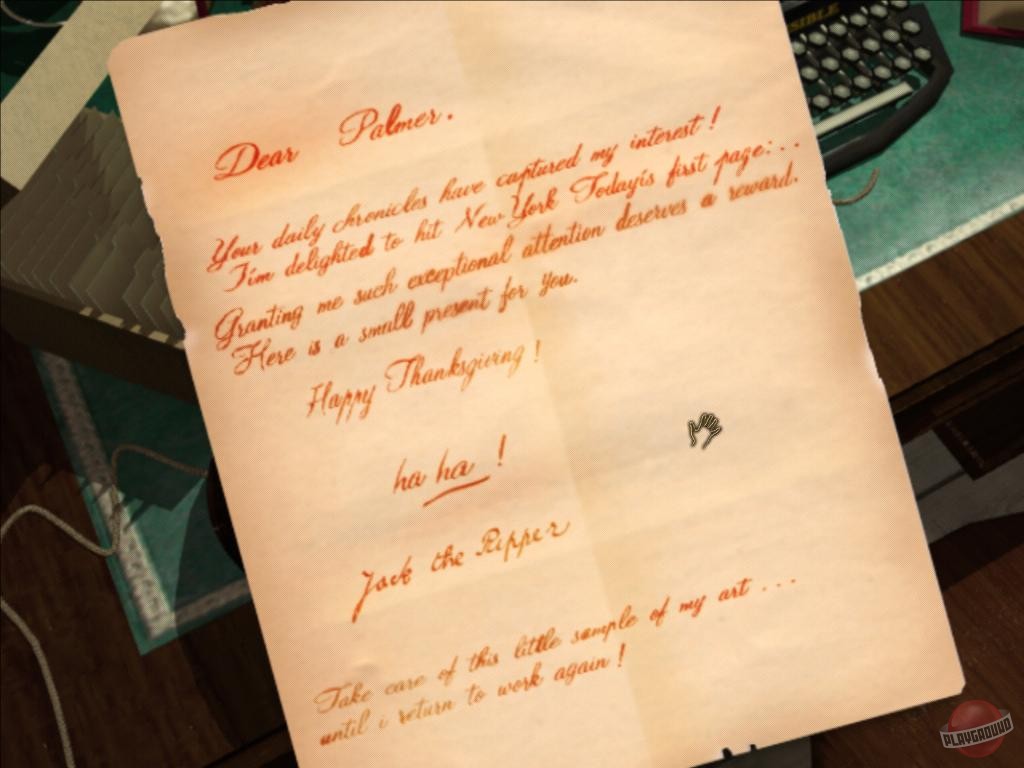 SIBLE
Dear Palmer.
Your daily chronicles have captured my interest!
I'm delighted to hit New York Today's first page:..
Granting me such exceptional attention deserves a reward.
Here is a small present for you.
Happy Thanksgiving!
ha ha!
Jack the Ripper
Take care of this little sample of my art ...
until i return to work again!
PLAYGROUND